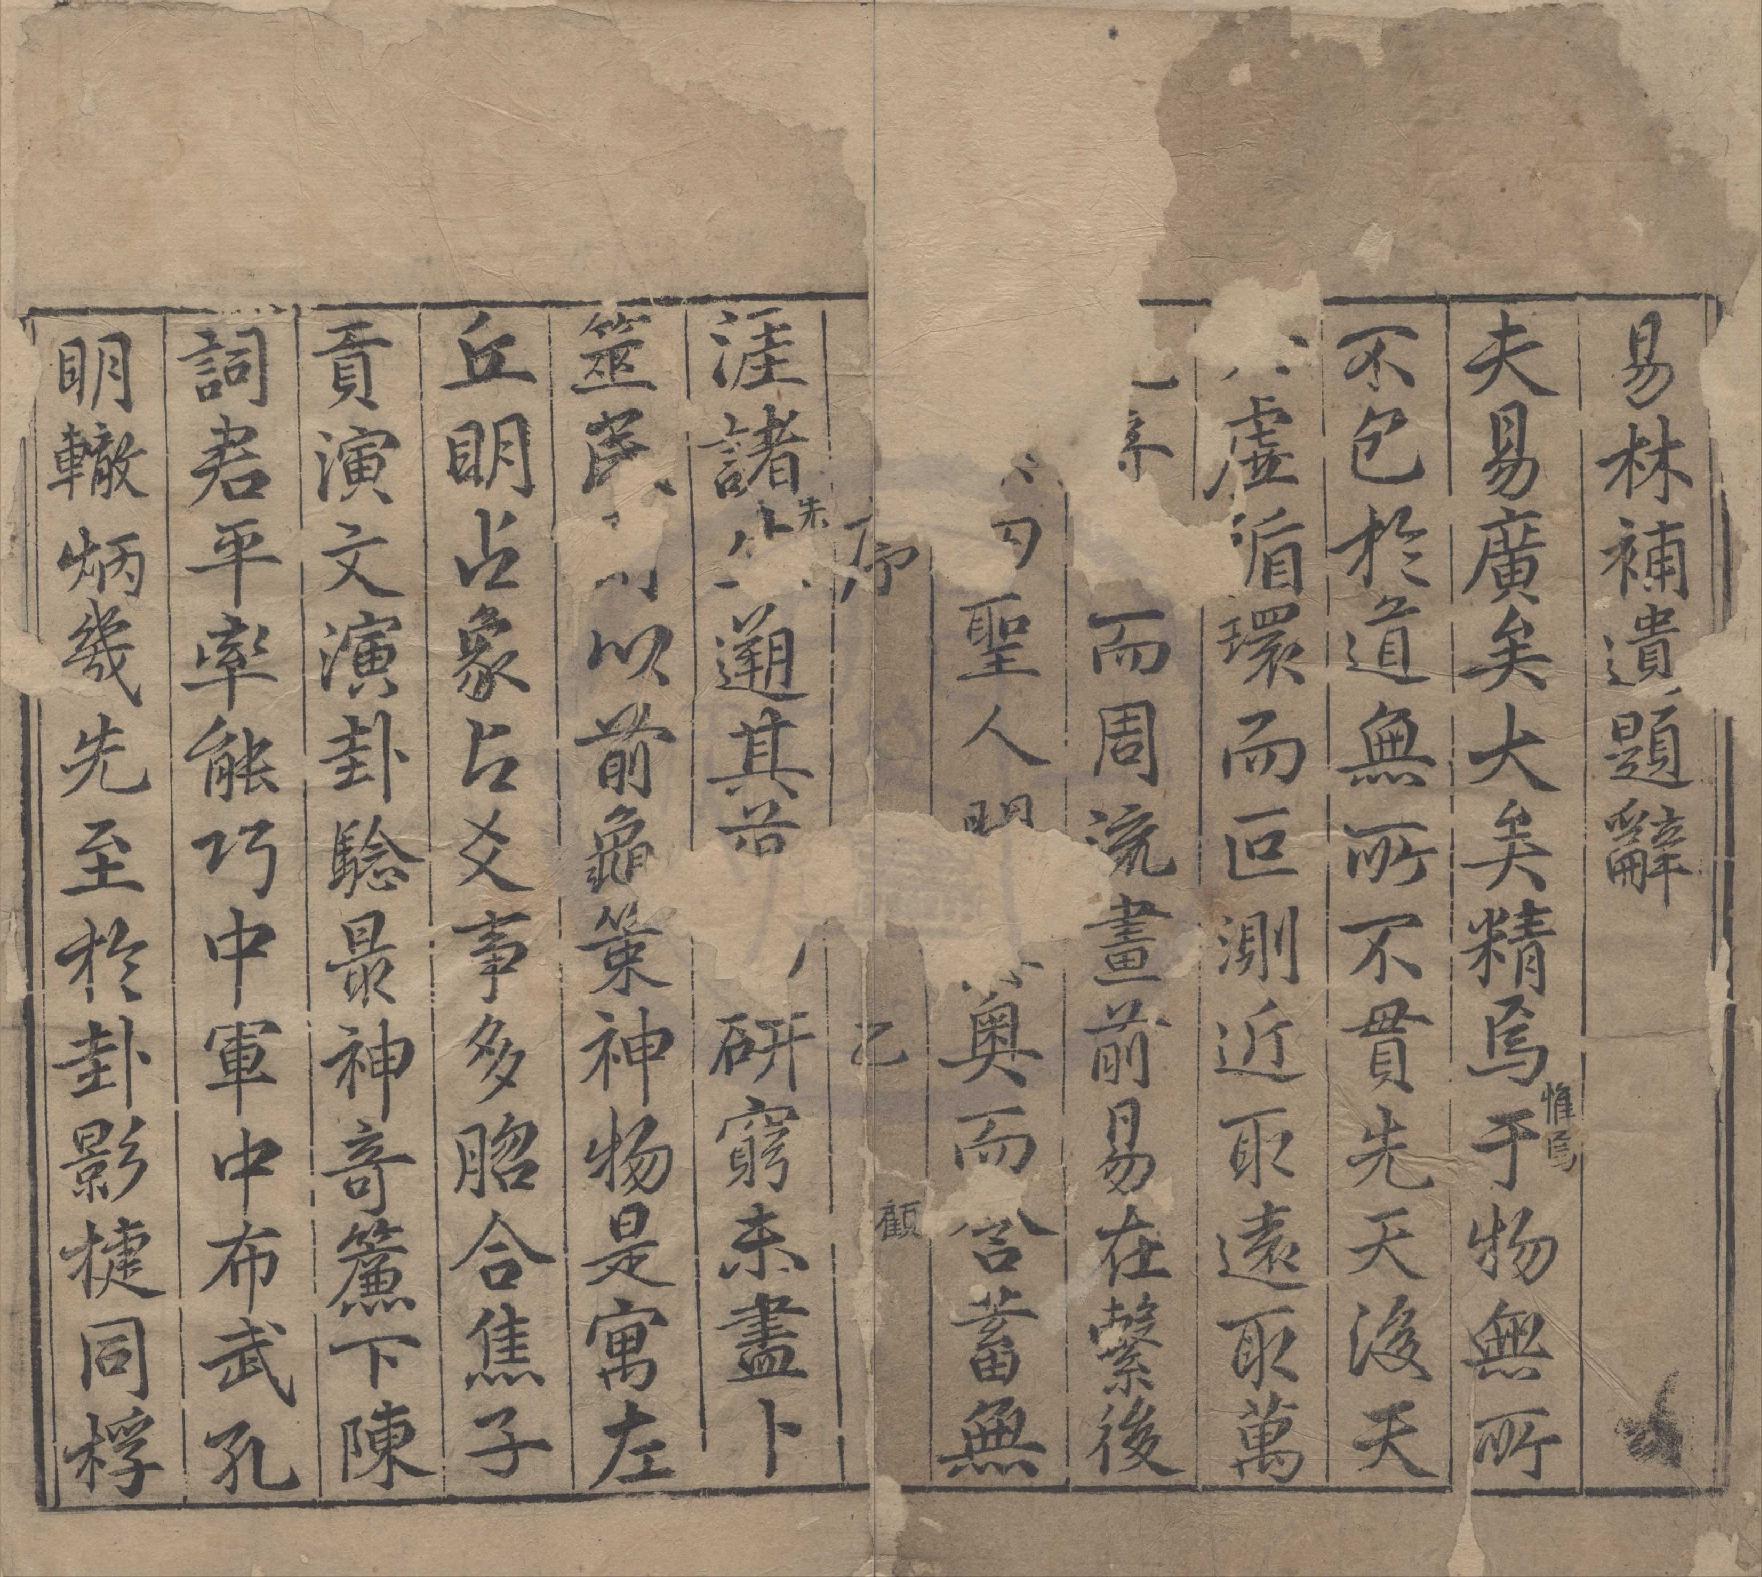 易林補遺題辭
夫易廣矣大矣精焉于物無所
惟焉
不包於道無所不貫先天後天
虛循環而叵測近取遠取萬
而周流畫前易在繫後
聖人奧而含蓄無
序 乙 顧
涯諸遡其研窮未盡卜
未
筮以前龜策神物是寓左
丘明占象占爻事多脗合焦子
貢演文演卦騐最神奇簾下陳
詞君平率能巧中軍中布武孔
明轍炳幾先至於卦影捷同桴